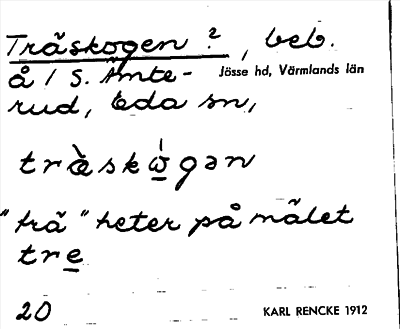 Träskogen ?, beb.
å / S. Ämte- Jösse hd, Värmlands län
rud, Eda sn,
trä̀skώ̱gən
"trä" heter på målet
tre̱
20 KARL RENCKE 1912